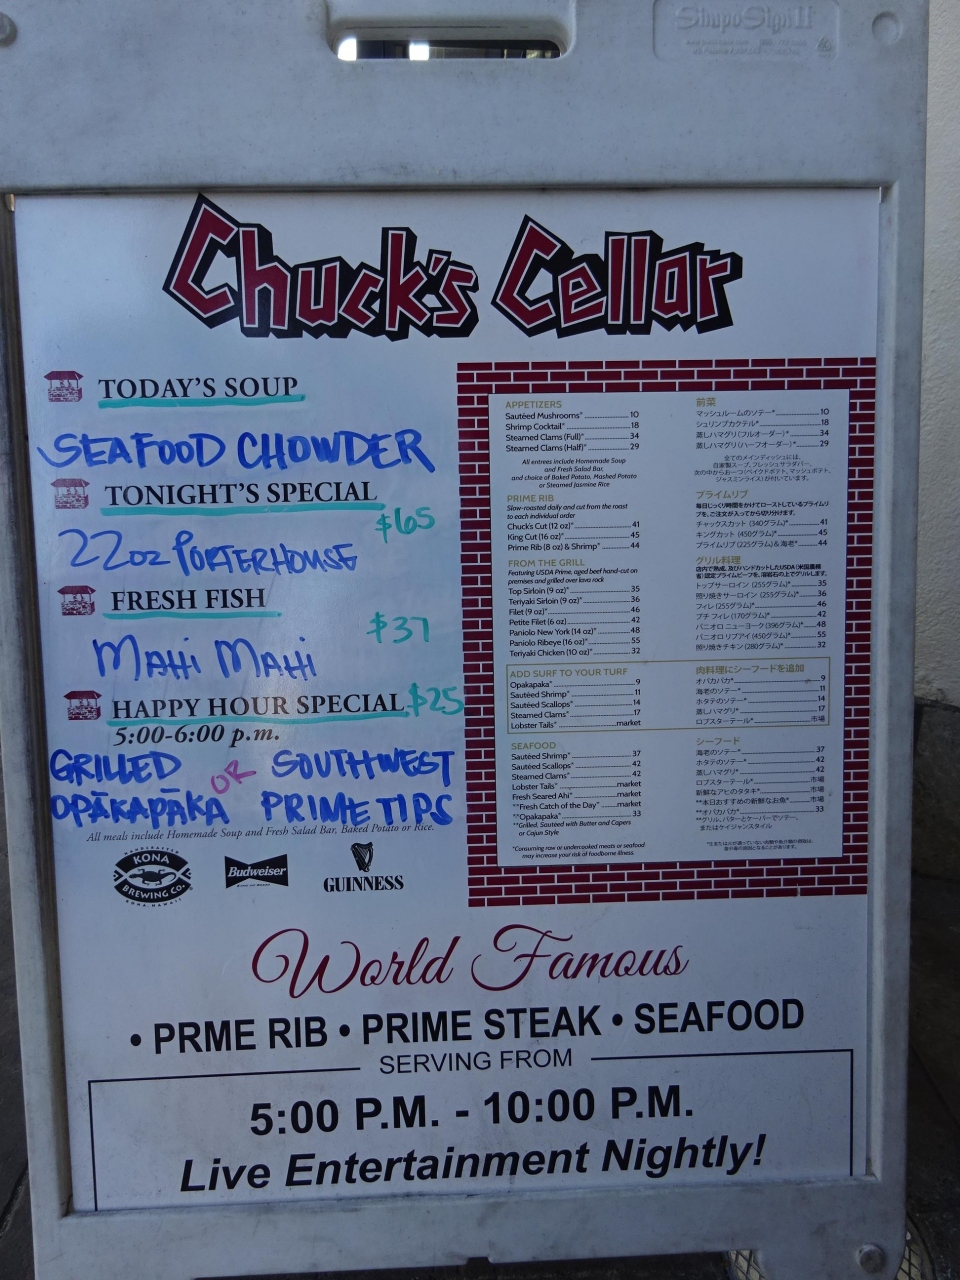 Chuck's Cellar
TODAY'S SOUP
SEAFOOD CHOWDER
TONIGHT'S SPECIAL
$65
22oz PORTERHOUSE
FRESH FISH
$37
MAHI MAHI
HAPPY HOUR SPECIAL $25
5:00-6:00 p.m.
GRILLED OR SOUTHWEST
OPĀKAPĀKA PRIME TIPS
All meals include Homemade Soup and Fresh Salad Bar, Baked Potato or Rice.
KONA
BREWING CO.
Budweiser
GUINNESS
APPETIZERS
Sautéed Mushrooms* 10
Shrimp Cocktail* 18
Steamed Clams (Full)* 34
Steamed Clams (Half)* 29
All entrees include Homemade Soup
and Fresh Salad Bar,
and choice of Baked Potato, Mashed Potato
or Steamed Jasmine Rice
PRIME RIB
Slow-roasted daily and cut from the roast
to each individual order
Chuck's Cut (12 oz)* 41
King Cut (16 oz)* 45
Prime Rib (8 oz) & Shrimp* 44
FROM THE GRILL
Featuring USDA Prime, aged beef hand-cut on
premises and grilled over lava rock
Top Sirloin (9 oz)* 35
Teriyaki Sirloin (9 oz)* 36
Filet (9 oz)* 46
Petite Filet (6 oz)* 42
Paniolo New York (14 oz)* 48
Paniolo Ribeye (16 oz)* 55
Teriyaki Chicken (10 oz)* 32
ADD SURF TO YOUR TURF
Opakapaka* 9
Sautéed Shrimp* 11
Sautéed Scallops* 14
Steamed Clams* 17
Lobster Tails* market
SEAFOOD
Sautéed Shrimp* 37
Sautéed Scallops* 42
Steamed Clams* 42
Lobster Tails* market
Fresh Seared Ahi* market
**Fresh Catch of the Day* market
**Opakapaka* 33
**Grilled, Sautéed with Butter and Capers
or Cajun Style
*Consuming raw or undercooked meats or seafood
may increase your risk of foodborne illness.
前菜
マッシュルームのソテー* 10
シュリンプカクテル* 18
蒸しハマグリ (フルオーダー)* 34
蒸しハマグリ (ハーフオーダー)* 29
全てのメインディッシュには、
自家製スープ、フレッシュサラダバー、
次の中からお一つ(ベイクドポテト、マッシュポテト、
ジャスミンライス)が付いています。
プライムリブ
毎日じっくり時間をかけてローストしているプライムリ
ブを、ご注文が入ってから切り分けます。
チャックスカット (340グラム)* 41
キングカット (450グラム)* 45
プライムリブ (225グラム) & 海老* 44
グリル料理
トップサーロイン (255グラム)* 35
照り焼きサーロイン (255グラム)* 36
フィレ (255グラム)* 46
プチ フィレ (170グラム)* 42
パニオロ ニューヨーク (396グラム)* 48
パニオロ リブアイ (450グラム)* 55
照り焼きチキン (280グラム)* 32
肉料理にシーフードを追加
オパカパカ* 9
海老のソテー* 11
ホタテのソテー* 14
蒸しハマグリ* 17
ロブスターテール* 市場
シーフード
海老のソテー* 37
ホタテのソテー* 42
蒸しハマグリ* 42
ロブスターテール* 市場
新鮮なアヒのタタキ* 市場
**本日おすすめの新鮮なお魚* 市場
**オパカパカ* 33
**グリル、バターとケーパーでソテー、
またはケイジャンスタイル
World Famous
• PRME RIB • PRIME STEAK • SEAFOOD
SERVING FROM
5:00 P.M. - 10:00 P.M.
Live Entertainment Nightly!